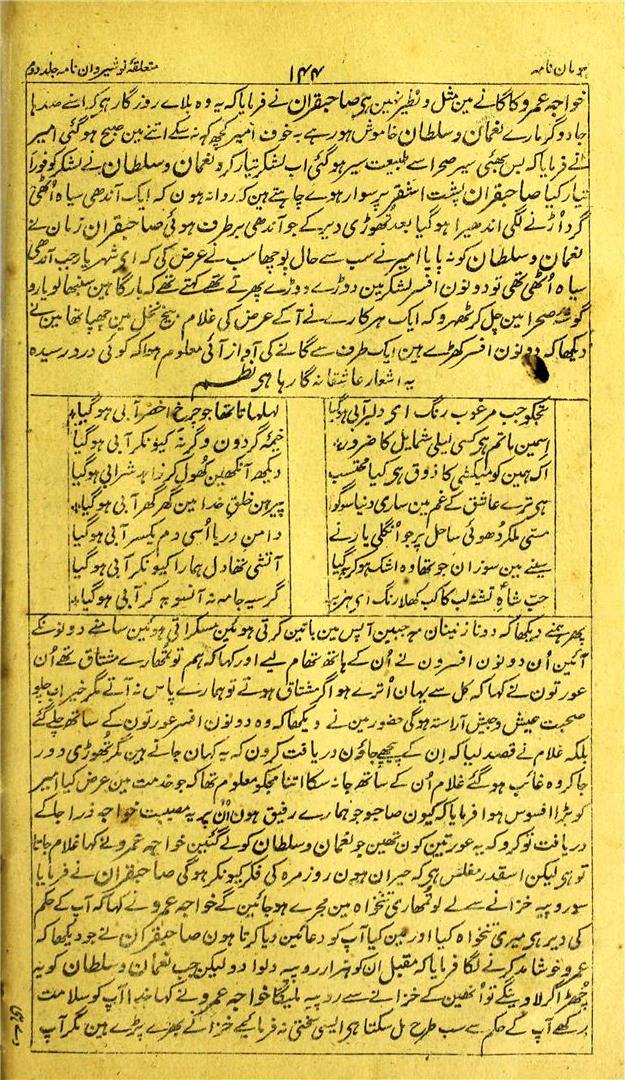 ہومان نامہ ۱۴۴ متعلقۂ نوشیروان نامہ جلد دوم
خواجہ عمرو کا گانے مین مثل و نظیر نہین ہی صاحبقران نے فرمایا کہ یہ وہ بلاے روزگار ہو کہ اسنے صدہا
جادوگر مارے نعمان و سلطان خاموش ہو رہے بہ خوف امیر کچھ کہہ نہ سکے اتنے مین صبح ہو گئی امیر
نے فرمایا کہ بس بھئی سیر صحرا سے طبیعت سیر ہو گئی اب لشکر تیار کرو نعمان و سلطان نے لشکر کو فوراً
تیار کیا صاحبقران پشت اشقر پر سوار ہوے چاہتے ہین کہ روانہ ہون کہ ایک آندھی سیاہ اُٹھی
گرد اُڑنے لگی اندھیرا ہو گیا بعد تھوڑی دیر کے جو آندھی برطرف ہوئی صاحبقران زمان نے
نعمان و سلطان کو نہ پایا امیر نے سب سے حال پوچھا سب نے عرض کی کہ ای شہریار جب آندھی
سیاہ اُٹھی تھی تو دونون افسر لشکر مین دوڑے دوڑے پھرتے تھے کہتے تھے کہ بارگاہین سنبھالو یارو
گوشۂ صحرا مین چل کر ٹھہرو کہ ایک ہرکارے نے آ کے عرض کی غلام بیخ نخل مین چھپا تھا مین نے
دیکھا کہ دونون افسر کھڑے ہین ایک طرف سے گانے کی آواز آئی معلوم ہوا کہ کوئی درد رسیدہ
یہ اشعار عاشقانہ گا رہا ہی نظم
تجکو جب مرغوب رنگ ای دلبر آبی ہو گیا لہلہاتا تھا جو چرخ اخضر آبی ہو گیا
اسمین ماتم ہو کسی لیلی شمایل کا ضرور خیمۂ گردون وگرنہ کیونکر آبی ہو گیا
اک ہمین کو میکشی کا ذوق ہی کیا محتسب دیکھ آنکھین کھول کر زاہد شرابی ہو گیا
ہی ترے عاشق کے غم مین ساری دنیا سوگوار پیرہن خلق خدا مین گھر گھر آبی ہو گیا
مسی ملکر دھوئی ساحل پر جو انگلی یار نے دامن دریا اُسی دم یکسر آبی ہو گیا
سینے مین سوزان جو تھا وہ اشک ہو کر بہ گیا آتشی تھا دل ہمارا کیونکر آبی ہو گیا
حب شاہ تشنہ لب کا کب کھلا رنگ ای ہنر گر سیہ جامہ نہ آنسو بہ کر آبی ہو گیا
پھر مینے دیکھا کہ دو نازنینان مہ جبین آپس مین باتین کرتی ہوئین مسکراتی ہوئین سامنے دونونکے
آئین اُن دونون افسرون نے اُن کے ہاتھ تھام لیے اور کہا کہ ہم تو تمھارے مشتاق تھے اُن
عورتون نے کہا کہ کل سے یہان اُترے ہو اگر مشتاق ہوتے تو ہمارے پاس نہ آتے مگر خیر اب چلو
صحبت عیش و جیش آراستہ ہو گی حضور مین نے دیکھا کہ وہ دونون افسر عورتون کے ساتھ چلے گئے
بلکہ غلام نے قصد کیا کہ اِن کے پیچھے جاؤن دریافت کرون کہ یہ کہان جاتے ہین مگر تھوڑی دور
جا کر وہ غائب ہو گئے غلام اُن کے ساتھ جا نہ سکا اتنا مجکو معلوم تھا کہ جو خدمت مین عرض کیا امیر
کو بڑا افسوس ہوا فرمایا کہ کیون صاحبو جو ہمارے رفیق ہون اُن پر یہ مصیبت خواجہ ذرا جا کے
دریافت تو کرو کہ یہ عورتین کون تھین جو نعمان و سلطان کو لے گئین خواجہ عمرو نے کہا غلام جاتا
تو ہی لیکن اسقدر مفلس ہی کہ حیران ہون روزمرہ کی فکر کیونکر ہو گی صاحبقران نے فرمایا
سو روپیہ خزانے سے لے لو تمھاری تنخواہ مین مجرے ہو جائین گے خواجہ عمرو نے کہا کہ آپ کے حکم
کی دیر ہی میری تنخواہ کیا اور مین کیا آپ کو دعائین دیا کرتا ہون صاحبقران نے جو دیکھا کہ
عمرو خوشامد کرنے لگا فرمایا کہ مقبل ان کو ہزار روپیہ دلوا دو لیکن جب نعمان و سلطان کو یہ
چھڑا کر لاوینگے تو اُنھین کے خزانے سے روپیہ ملیگا خواجہ عمرو نے کہا خدا آپ کو سلامت
رکھے آپ کے حکم سے سب طرح مل سکتا ہی ایسی سختی نہ فرمائیے خزانے بھرے پڑے ہین مگر آپ